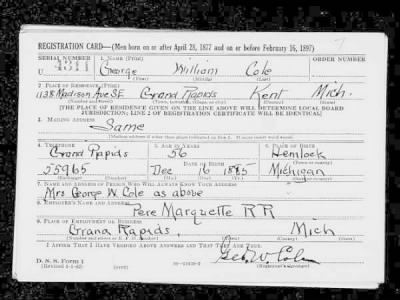 REGISTRATION CARD—(Men born on or after April 28, 1877 and on or before February 16, 1897)
SERIAL NUMBER 1. NAME (Print) ORDER NUMBER
U 4311 George William Cole
(First) (Middle) (Last)
2. PLACE OF RESIDENCE (Print)
1138 Madison Ave SE Grand Rapids Kent Mich.
(Number and street) (Town, township, village, or city) (County) (State)
[THE PLACE OF RESIDENCE GIVEN ON THE LINE ABOVE WILL DETERMINE LOCAL BOARD
JURISDICTION; LINE 2 OF REGISTRATION CERTIFICATE WILL BE IDENTICAL]
3. MAILING ADDRESS
Same
[Mailing address if other than place indicated on line 2. If same insert word same]
4. TELEPHONE 5. AGE IN YEARS 6. PLACE OF BIRTH
Grand Rapids 56 Hemlock
DATE OF BIRTH (Town or county)
55965 Dec 16 1885 Michigan
(Exchange) (Number) (Mo.) (Day) (Yr.) (State or country)
7. NAME AND ADDRESS OF PERSON WHO WILL ALWAYS KNOW YOUR ADDRESS
Mrs George W Cole as above
8. EMPLOYER'S NAME AND ADDRESS
Pere Marquette RR
9. PLACE OF EMPLOYMENT OR BUSINESS
Grand Rapids, Mich
(Number and street or R. F. D. number) (Town) (County) (State)
I AFFIRM THAT I HAVE VERIFIED ABOVE ANSWERS AND THAT THEY ARE TRUE.
D. S. S. Form 1 Geo. W. Cole
(Revised 4-1-42) (over)